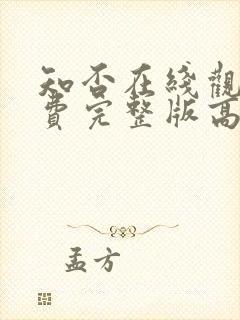 知否在线觀
費完整版高
孟方